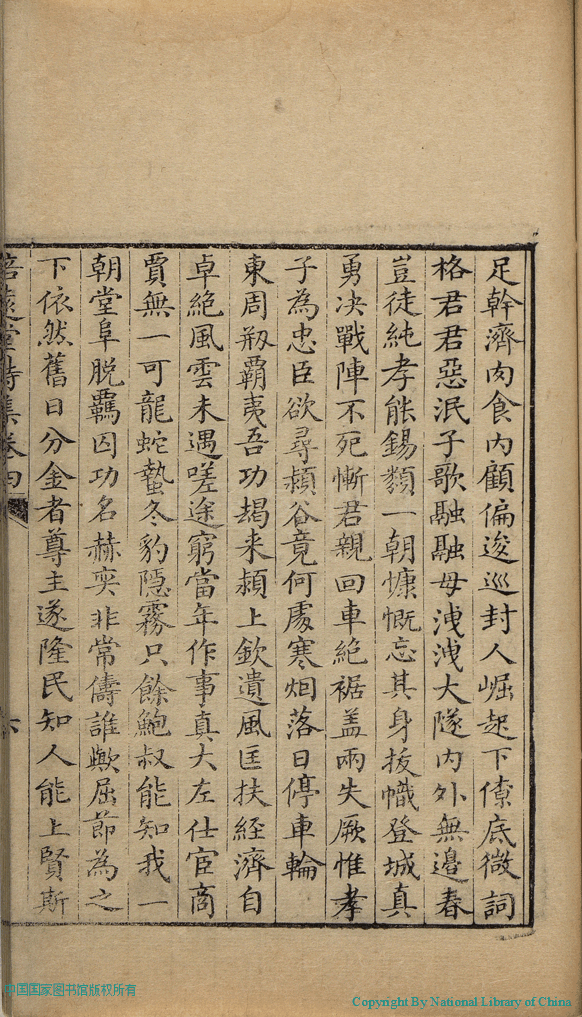 足幹濟肉食內顧偏逡巡封人崛起下僚底微詞
格君君惡泯子歌融融母洩洩大隧內外無邊春
豈徒純孝能錫類一朝慷慨忘其身拔幟登城真
勇决戰陣不死慚君親回車絕裾盖兩失厥惟孝
子為忠臣欲尋潁谷竟何處寒烟落日停車輪
東周剏霸夷吾功朅來潁上欽遺風匡扶經濟自
卓絕風雲未遇嗟途窮當年作事真大左仕宦商
賈無一可龍蛇蟄冬豹隱霧只餘鮑叔能知我一
朝堂阜脫羈囚功名赫奕非常儔誰歟屈節為之
下依然舊日分金者尊主遂隆民知人能上賢斯
堂詩集卷四
六
中国国家图书馆版权所有
Copyright By National Library of China